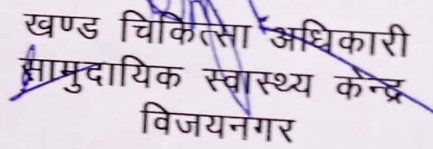 खण्ड चिकित्सा अधिकारी
सामुदायिक स्वास्थ्य केन्द्र
विजयनगर